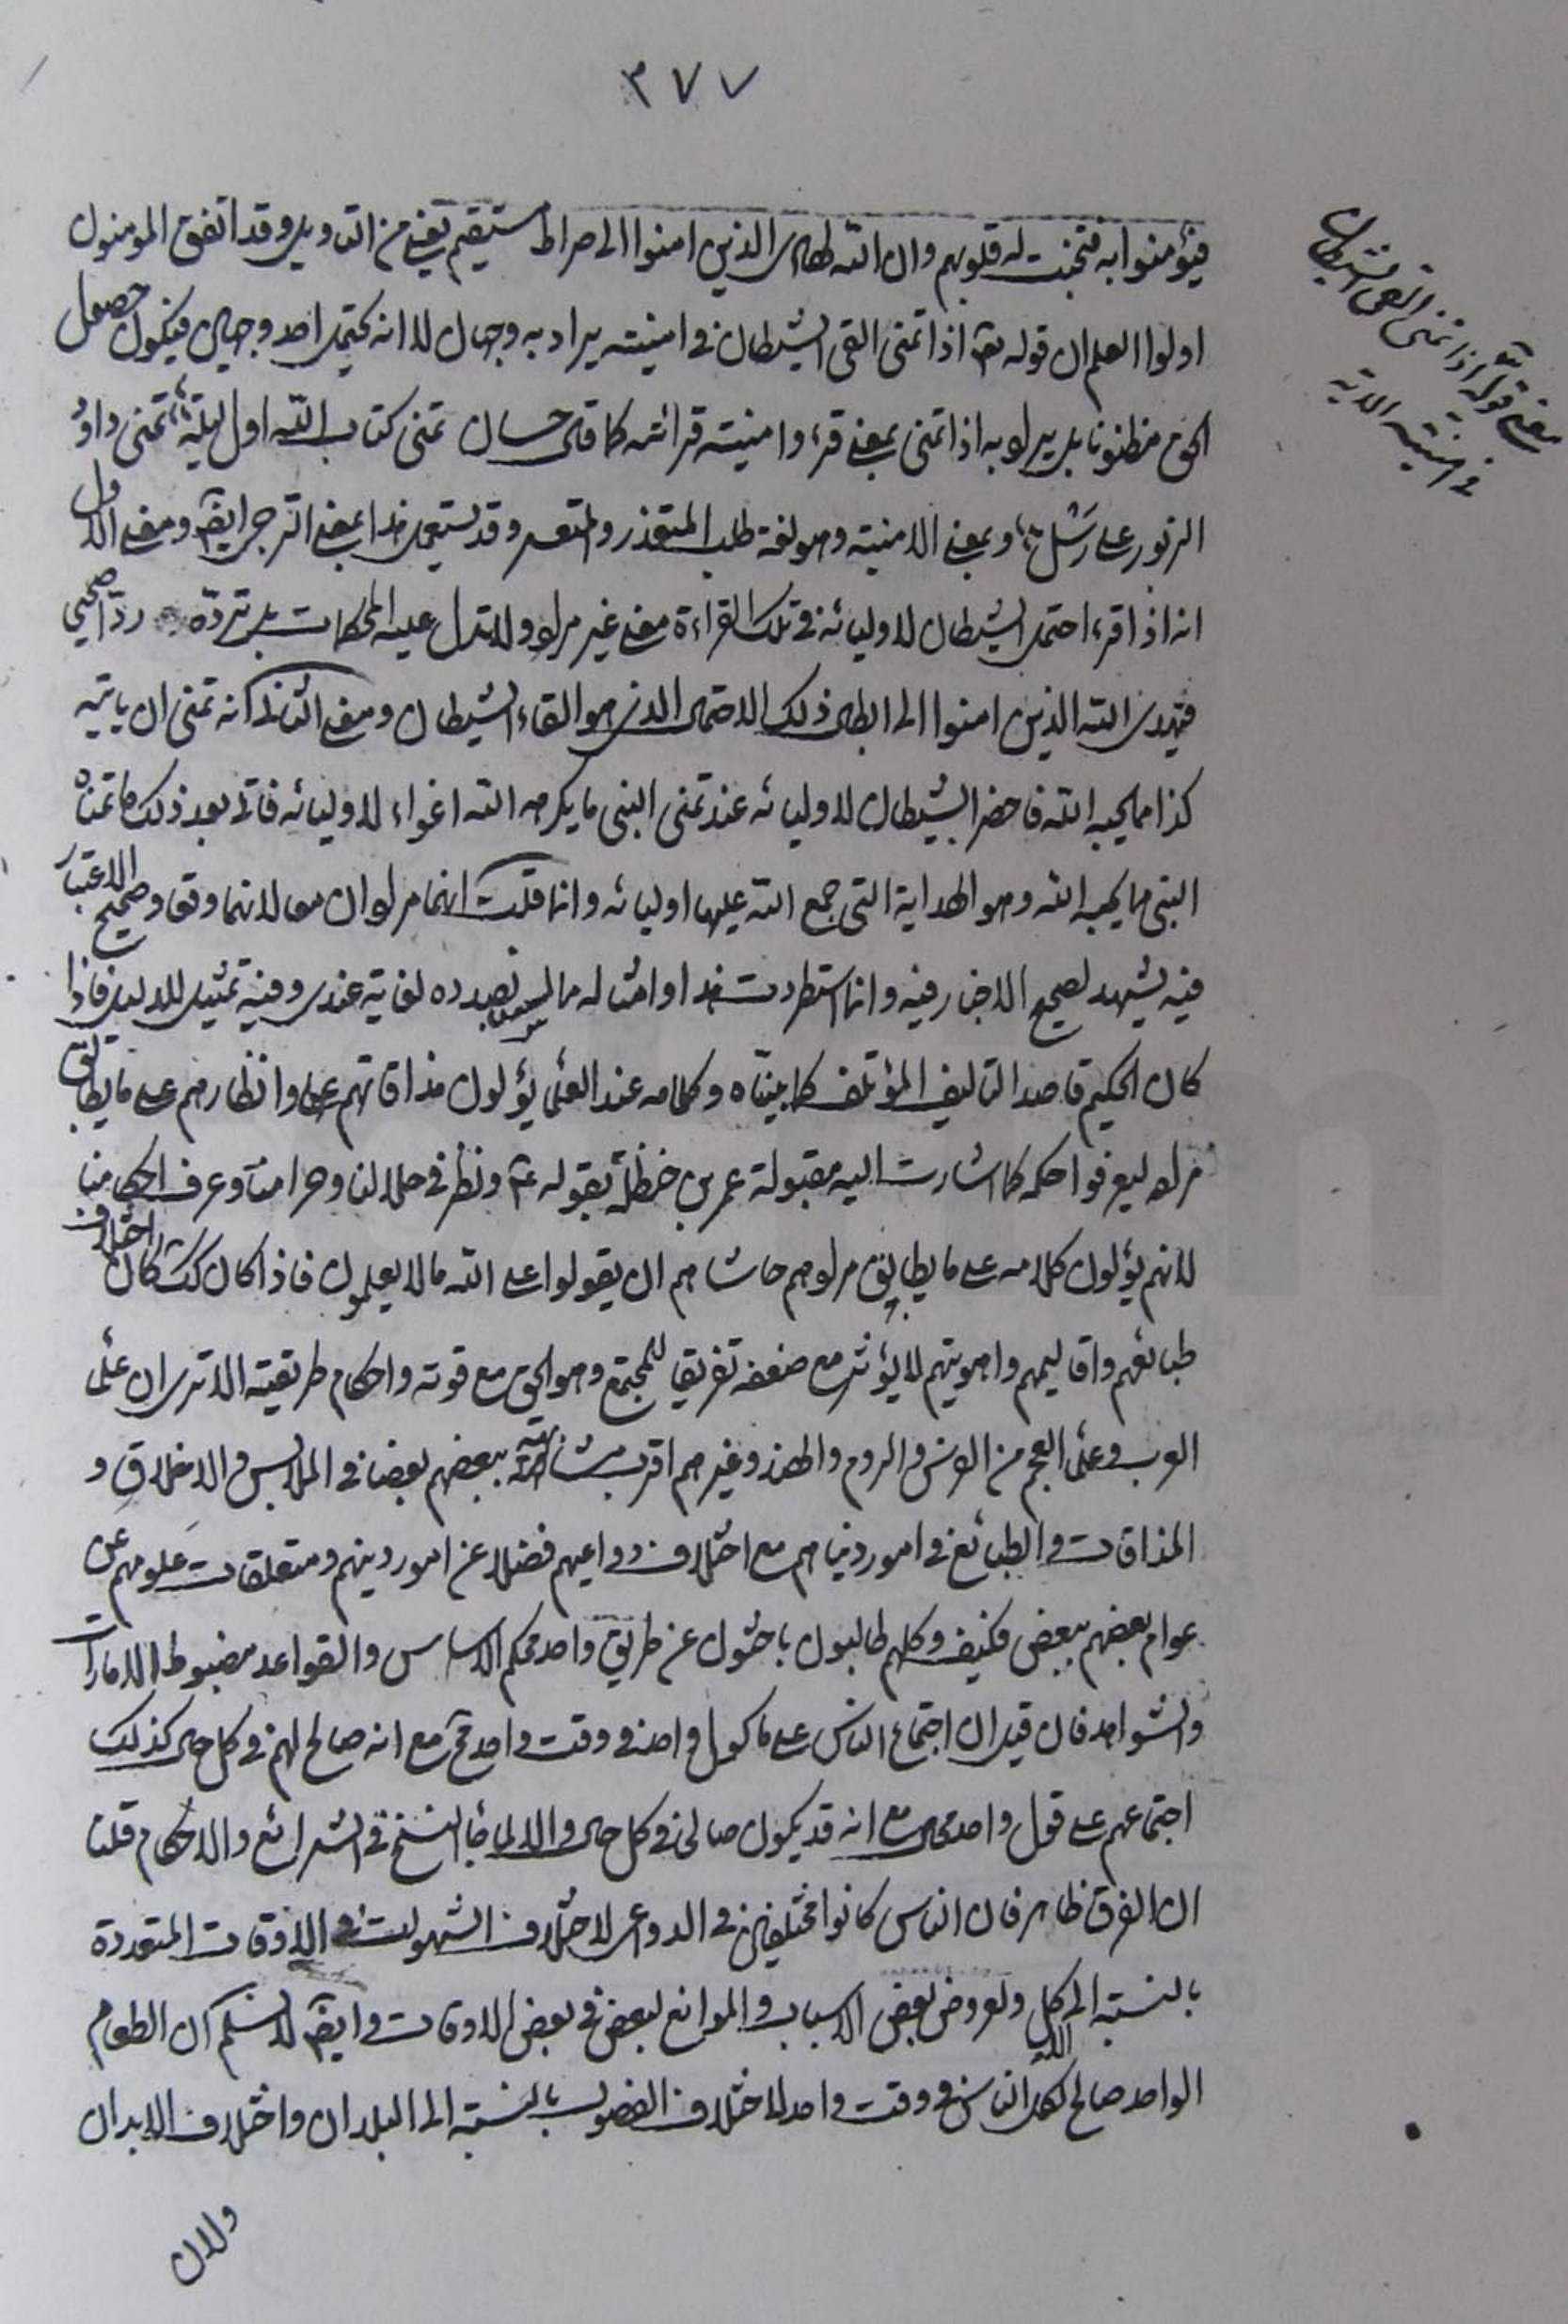 ٣٧٧
فيؤمنوا به فتخبت له قلوبهم وان الله لهادى الذين امنوا الى صراط مستقيم يعني من التاويل وقد اتفق المومنون
اولوا العلم ان قوله تعا اذا تمنى القى الشيطان في امنيته يراد به وجهان لا انه يحتمل احد وجهين فيكون حصول
الحق مظنونا بل يراد به اذا تمنى بمعنى قرء وامنيته قرائته كما قال حسان تمنى كتاب الله اول ليلة تمنى داود
الزبور على رسل وبمعنى الامنية وهو لغة طلب المتعذر والمتعسر وقد يستعمل هذا بمعنى الترجي ايضا ومعنى الاول
انه اذا قرء احتمل الشيطان لاوليائه في تلك القراءة معنى غير مراد ولا تدل عليه المحكمات بل تردّه ردّا صحيحا
فيهدى الله الذين امنوا الى ابطال ذلك الاحتمال الذى هو القاء الشيطان ومعنى الثانى انه تمنى ان ياتيه
كذا مما يحبه الله فاحضر الشيطان لاوليائه عند تمنى النبى ما يكرهه الله اغواء لاوليائه فاتى بعد ذلك ما تمناه
النبى ما يحبه الله وهو الهداية التى جمع الله عليها اوليائه وانما قلت انهما مرادان معا لانهما وقعا وصحيح الاعتبار
فيه يشهد لصحيح الاخبار فيه وانما استطردت هذا وامثاله مما ليس بصدده لغاية عندى وفيه تمثيل للدليل فاذا
كان الحكيم قاصدا التاليف المؤتلف كما بينّاه وكلامه عند العلماء يؤلون مذاقاتهم وانظارهم على ما يطابق
مراده ليعرفوا حكمه كما اشارت اليه مقبولة عمر بن حنظلة بقوله ع ونظر في حلالنا وحرامنا وعرف احكامنا
لا انهم يؤلون كلامه على ما يطابق مرادهم حاشاهم ان يقولوا على الله ما لا يعلمون فاذا كان كذلك كان اختلاف
طبائعهم واقاليمهم واهويتهم لا يؤثر مع ضعفه تفريقا للمجتمع وهو الحق مع قوته واحكام طريقته الا ترى ان علماء
العرب وعلماء العجم من الفرس والروم والهند وغيرهم اقرب مشابهة ببعضهم بعضا في الملابس والاخلاق و
المذاقات والطبائع في امور دنياهم مع اختلاف دواعيهم فضلا عن امور دينهم ومتعلقات علومهم عن
عوام بعضهم ببعض فكيف وكلهم طالبون باحثون عن طريق واحد محكم الاساس والقواعد مضبوط الامارات
والشواهد فان قيل ان اجتماع الناس على ماكول واحد في وقت واحد مح مع انه صالح لهم في كل حال كذلك
اجتماعهم على قول واحد محال مع انه قد يكون صالحا في كل حال والا لما جاء النسخ في الشرائع والاحكام قلنا
ان الفرق ظاهر فان الناس كانوا مختلفين في الدواعى لاختلاف الشهوات في الاوقات المتعددة
بالنسبة الى كل ولعروض بعض الاسباب والموانع لبعض في بعض الاوقات وايضا لا نسلم ان الطعام
الواحد صالح لكل الناس في وقت واحد لاختلاف الفصول بالنسبة الى البلدان واختلاف الابدان
ولان
معنى قوله تعا اذا تمنى القى الشيطان
في امنيته الاية